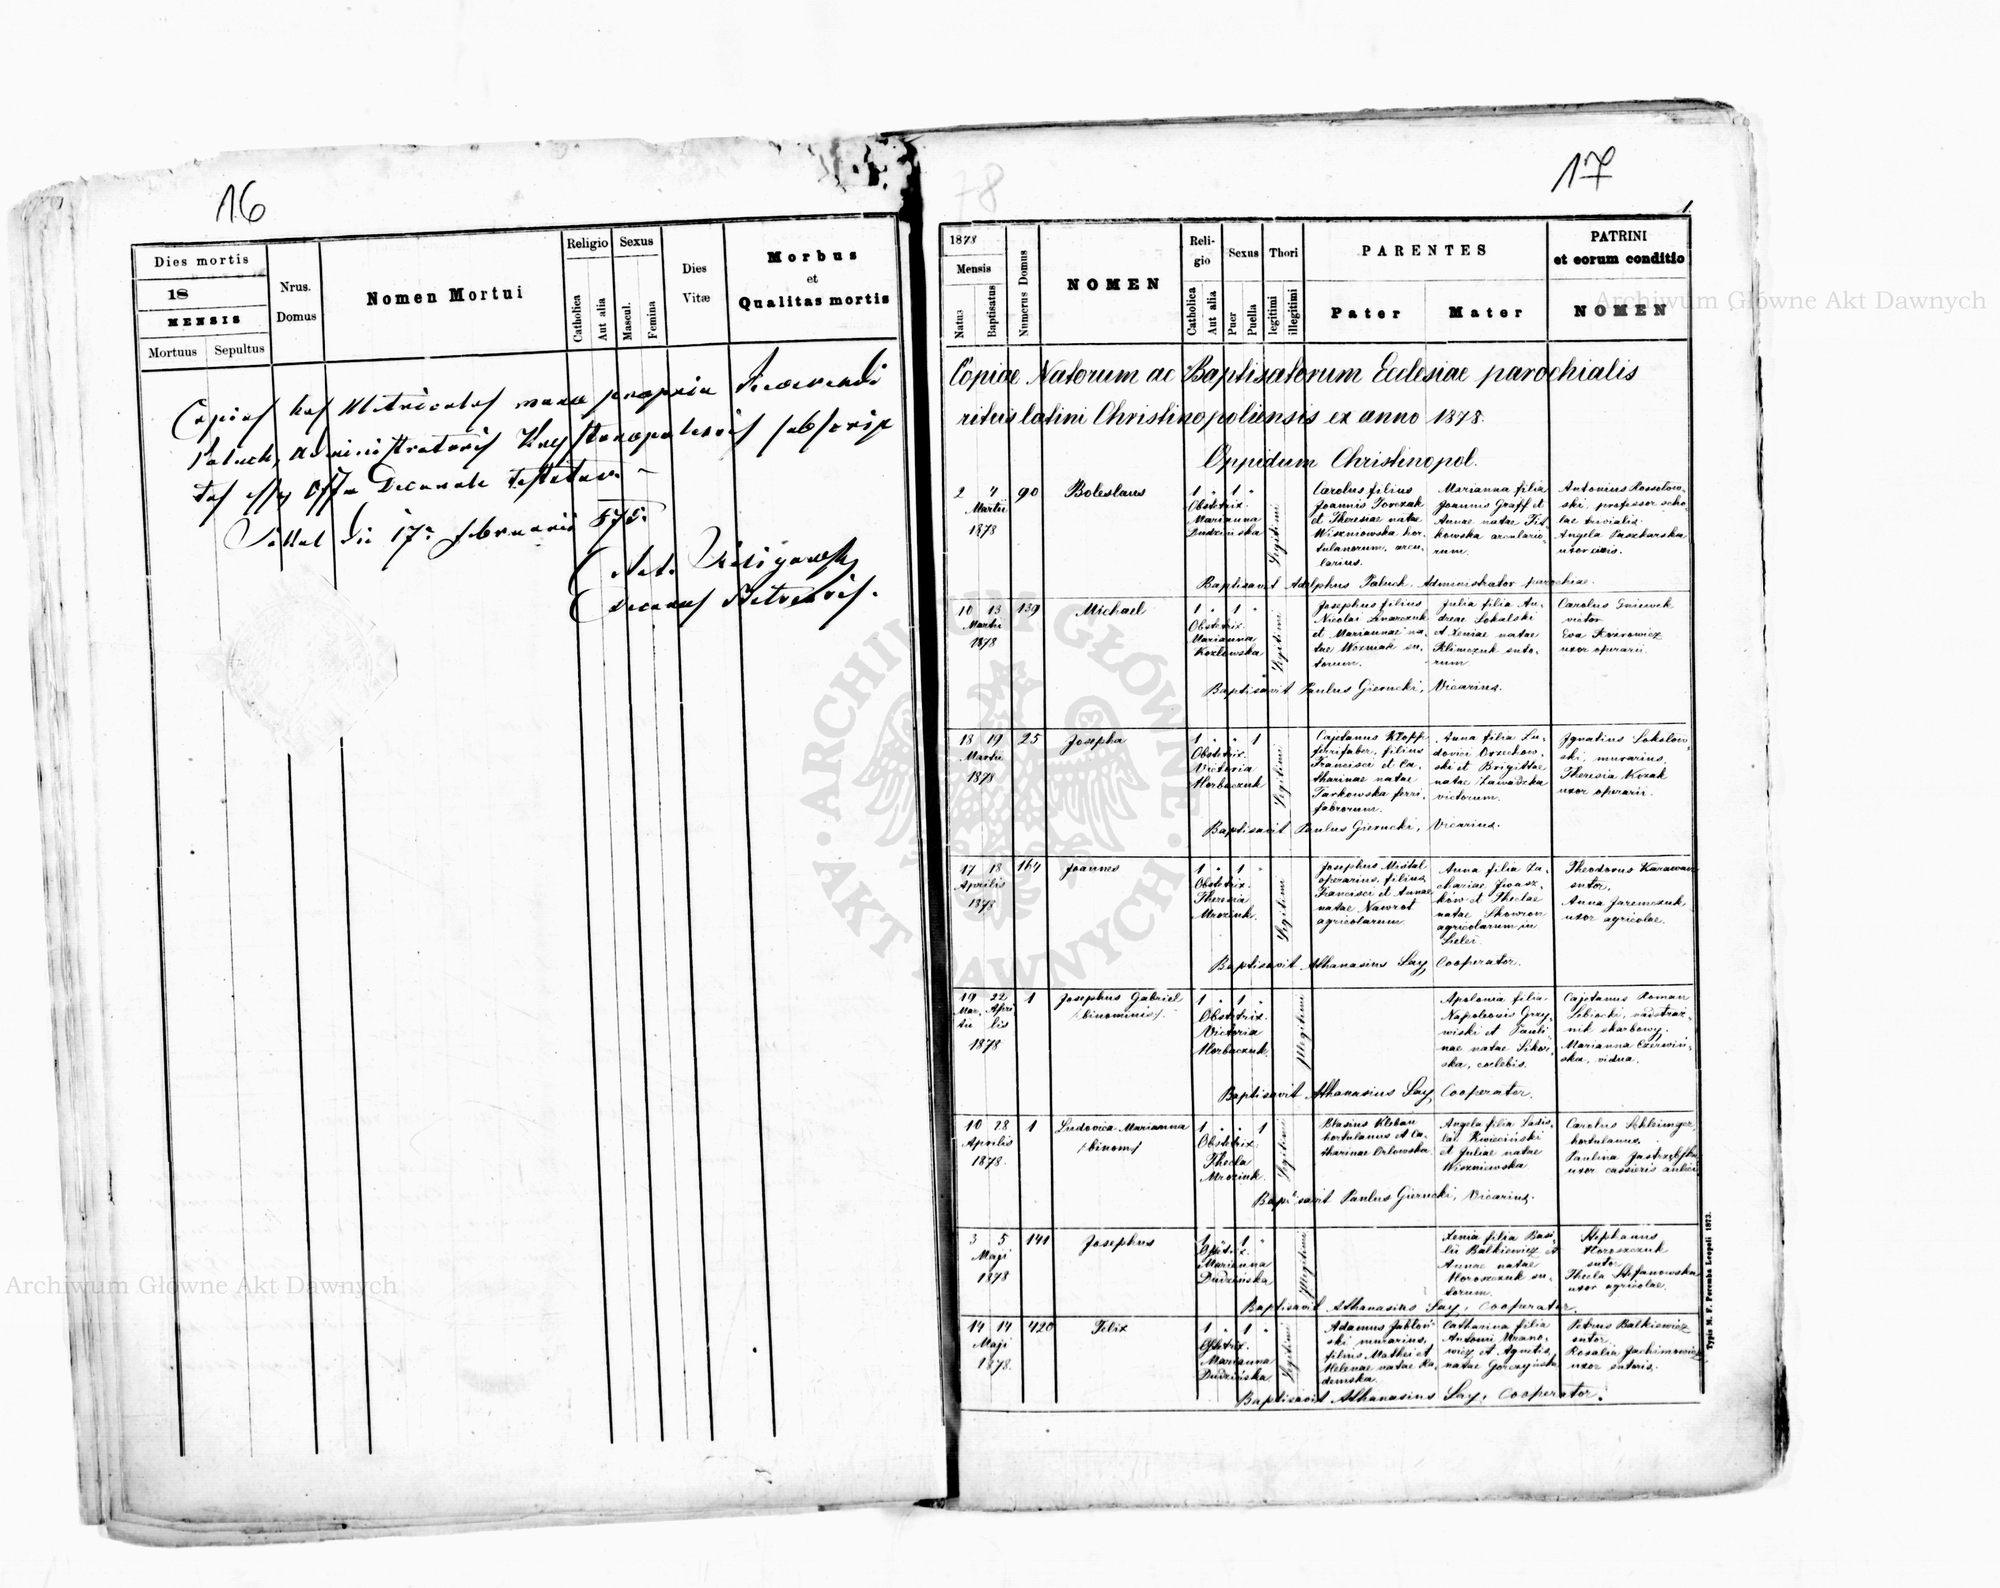 16
Dies mortis
18
MENSIS
Mortuus Sepultus
Nrus.
Domus
Nomen Mortui
Religio
Catholica
Aut alia
Sexus
Mascul.
Femina
Dies
Vitæ
Morbus
et
Qualitas mortis
Copias has Metricales manu propria
Paluch, Administratoris Krystianopolensis subscrip
tas esse Offm Decanale testatur.
die 17a februarii 875.
Ant.
Decanus
17
78
1.
1878
Mensis
Natus
Baptisatus
Numerus Domus
NOMEN
Reli-
gio
Catholica
Aut alia
Sexus
Puer
Puella
Thori
legitimi
illegitimi
PARENTES
Pater
Mater
PATRINI
et eorum conditio
NOMEN
Copiae Natorum ac Baptisatorum Ecclesiae parochialis
ritus latini Christinopoliensis ex anno 1878.
Oppidum Christinopol.
2 4
Martii
1878
90
Boleslaus
1 " 1 "
Obstetrix
Marianna
Dudzińska
Legitimi
Carolus filius
Joannis Torczak
et Theresiae natae
Wiszniowska hor-
tulanorum, arcu-
larius.
Marianna filia
Joannis Graff et
Annae natae Fit-
kowska arculario-
rum.
Antonius Rossolow-
ski, professor scho-
lae trivialis.
Angela Paszkarska
uxor civis.
Baptisavit Adolphus Paluch, Administrator parochiae.
10 13
Martii
1878
139
Michael
1 " 1 "
Obstetrix
Marianna
Kozłowska
Legitimi
Josephus filius
Nicolai Linarczuk
et Mariannae na-
tae Wozniak su-
torum.
Julia filia An-
dreae Sokalski
et Xeniae natae
Klimczuk suto-
rum
Carolus Gniewek
victor
Eva Rozrowicz
uxor operarii
Baptisavit Paulus Gierucki, Vicarius.
18 19
Martii
1878
25
Josepha
1 " " 1
Obstetrix
Victoria
Horbaczuk
Legitimi
Cajetanus Klopp
ferrifaber, filius
Francisci et Ca-
tharinae natae
Tarkowska ferri-
fabrorum.
Anna filia Lu-
dovici Orzechow-
ski et Brigittae
natae Zawadzka
victorum.
Ignatius Sokolow-
ski, murarius,
Theresia Kozak
uxor operarii.
Baptisavit Paulus Gierucki, Vicarius.
17 18
Aprilis
1878
164
Joannes
1 " 1 "
Obstetrix
Theresia
Mroziuk.
Legitimi
Josephus Mistal
operarius, filius
Francisci et Annae
natae Nawrot
agricolarum.
Anna filia Za-
chariae Iwasz-
ków et Theclae
natae Skowron
agricolarum in
Sielec.
Theodorus Karawan
sutor.
Anna Jaremczuk
uxor agricolae.
Baptisavit Athanasius Say, Cooperator.
19 22
Mar- Apri
tii lis
1878
1
Josephus Gabriel
/binominis/
1 " 1 "
Obstetrix
Victoria
Horbaczuk
Illegitimi
Apolonia filia
Napoleonis Grzy-
wiski et Pauli-
nae natae Sikor-
ska, coelebis.
Cajetanus Roman
Sebiocki, nadstraż-
nik skarbowy.
Marianna Czerwiń-
ska, vidua.
Baptisavit Athanasius Say, Cooperator.
10 28
Aprilis
1878.
1
Ludovica Marianna
/binom/
1 " " 1
Obstetrix
Thecla
Mroziuk.
Legitimi
Blasius Kloban
hortulanus et Ca-
tharinae Orlowska
Angela filia Ladis-
lai Kwieciński
et Juliae natae
Wiszniewska
Carolus Schleinger
hortulanus.
Paulina Jastrzębska
uxor cassieris aulici
Baptisavit Paulus Gierucki, Vicarius.
3 5
Maji
1878
141
Josephus
1 " 1 "
Obstetrix
Marianna
Dudzińska
Illegitimi
Xenia filia Basi-
lii Balkiewicz et
Annae natae
Horoszczuk su-
torum.
Stephanus
Horoszczuk
sutor
Thecla Stefanowska
uxor agricolae.
Baptisavit Athanasius Say, Cooperator.
14 14
Maji
1878.
420
Felix
1 " 1 "
Obstetrix
Marianna
Dudzińska
Legitimi
Adamus Jabłoń-
ski murarius,
filius Mathei et
Helenae natae Ra-
demska.
Catharina filia
Antoni Urano-
wicz et Agnetis
natae Gorczyńska
Petrus Balkiewicz
sutor
Rosalia Jachimowicz
uxor sutoris.
Baptisavit Athanasius Say, Cooperator.
Typis M. F. Poremba Leopoli 1873.
ARCHIWUM GŁÓWNE AKT DAWNYCH
Archiwum Główne Akt Dawnych
Archiwum Główne Akt Dawnych